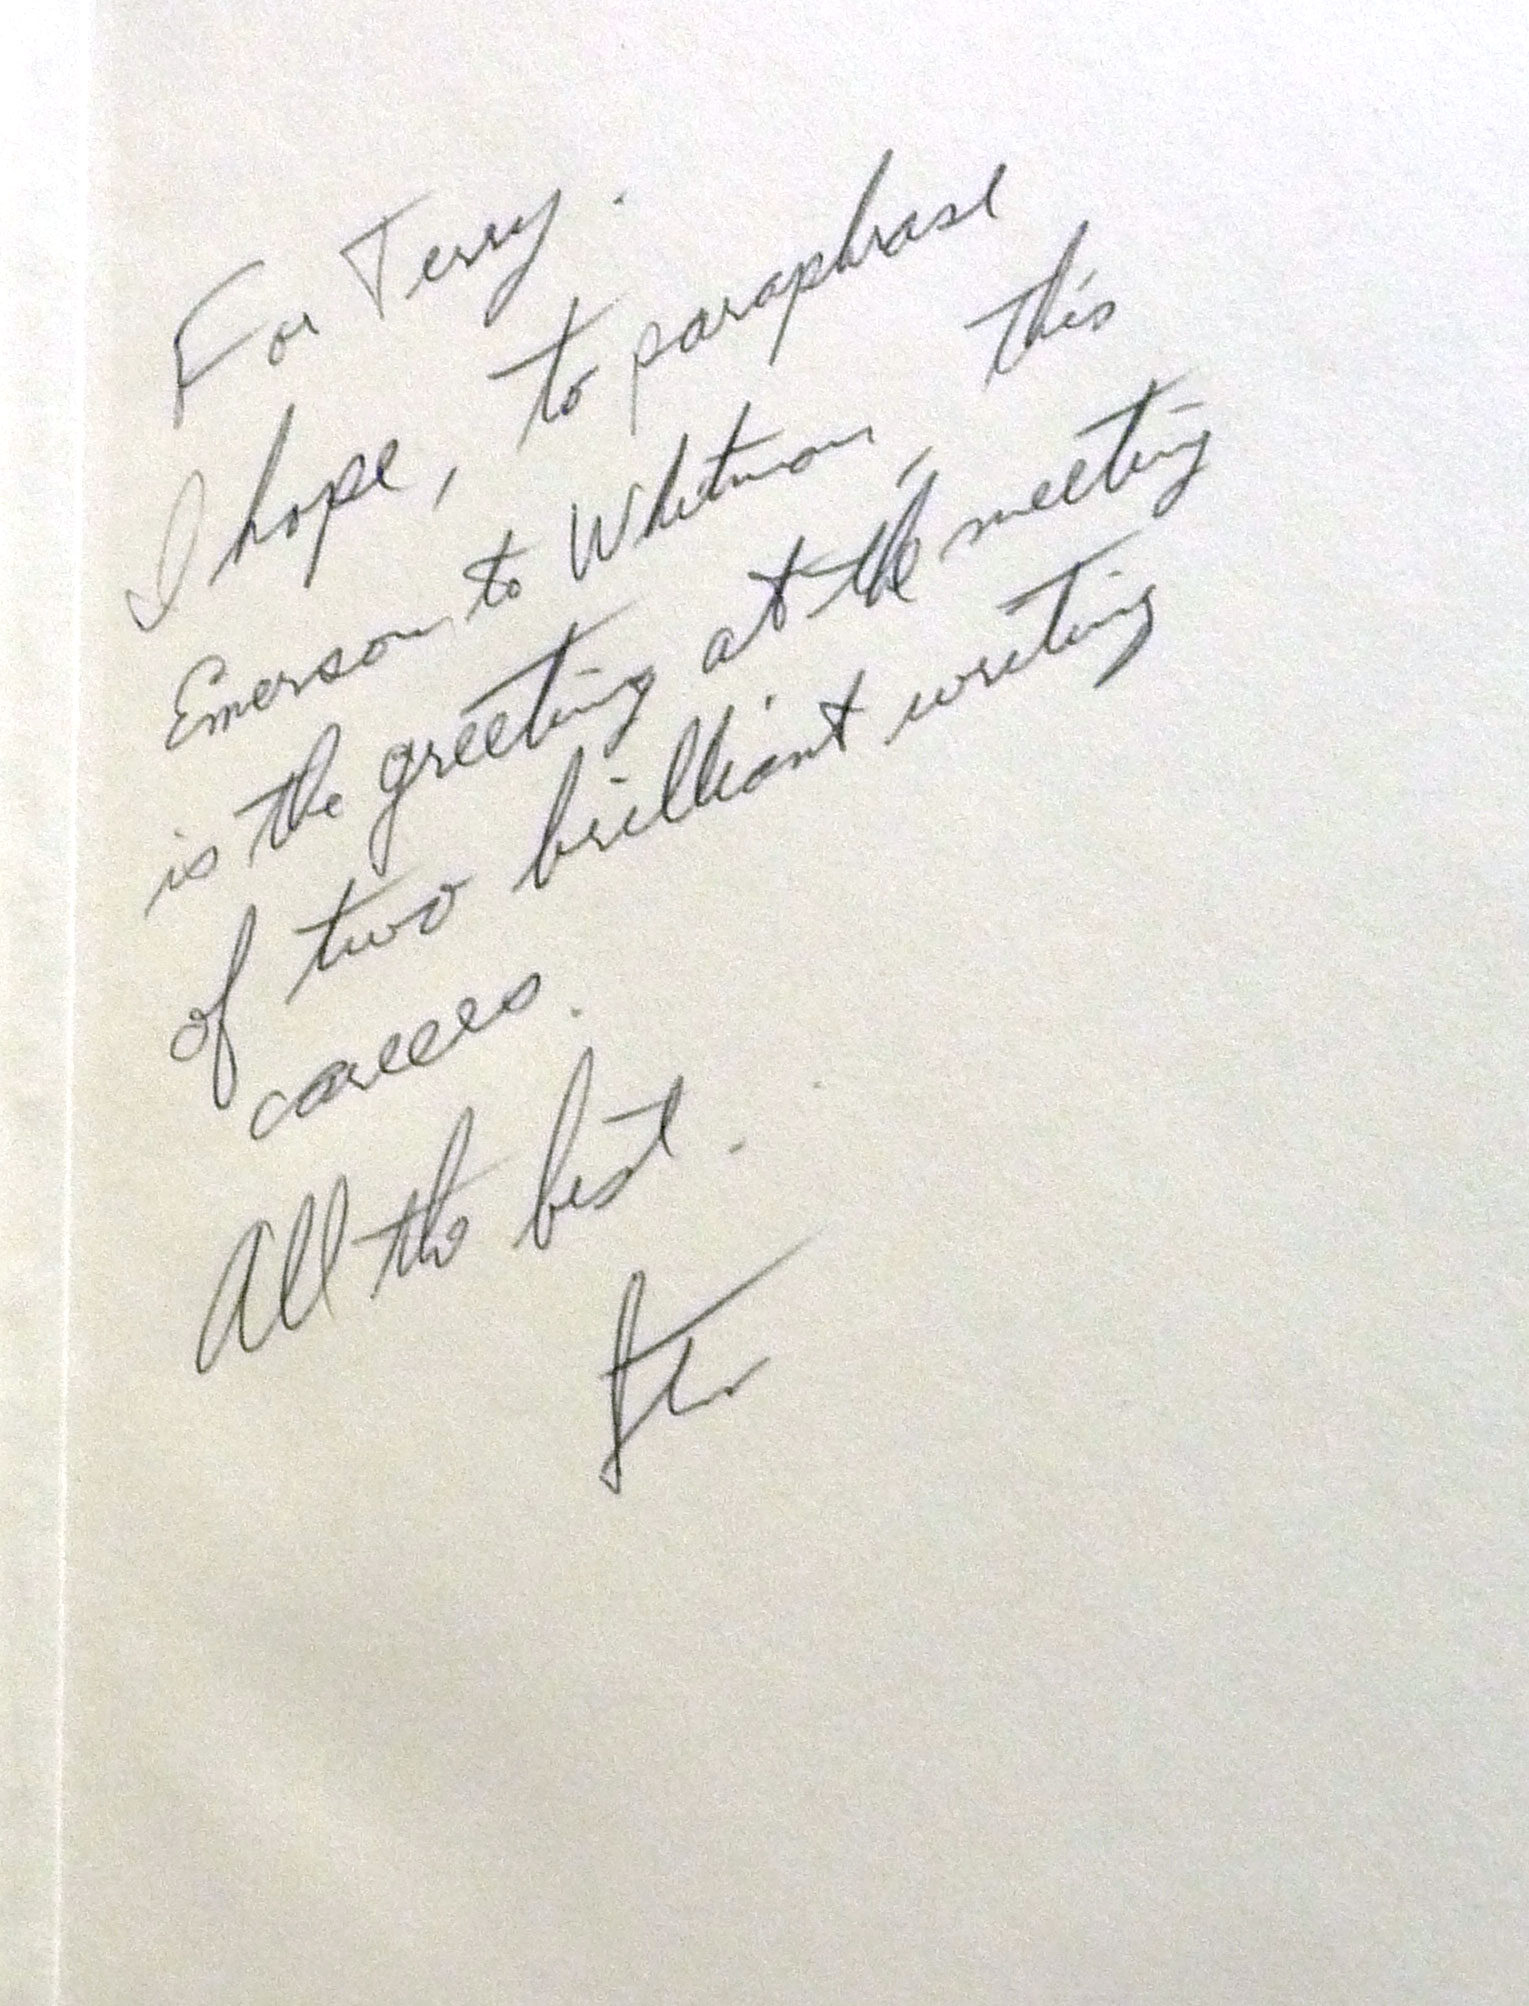 For Terry.
I hope, to paraphrase
Emerson to Whitman, this
is the greeting at the meeting
of two brilliant writing
careers.
All the best.